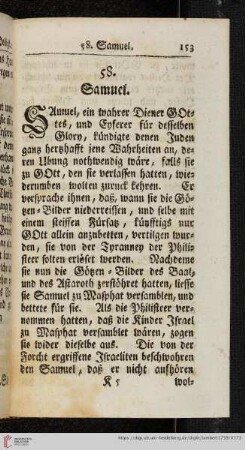 58. Samuel. 153
58.
Samuel.
SAmuel, ein wahrer Diener GOt-
tes, und Eyferer für desselben
Glory, kündigte denen Juden
ganz hertzhafft jene Wahrheiten an, de-
ren Ubung nothwendig wäre, falls sie
zu GOtt, den sie verlassen hatten, wie-
derumben wolten zuruck kehren. Er
versprache ihnen, daß, wann sie die Gö-
tzen-Bilder niederreissen, und selbe mit
einem steiffen Fürsatz, künfftigs nur
GOtt allein anzubetten, vertilgen wur-
den, sie von der Tyranney der Phili-
steer solten erlöset werden. Nachdeme
sie nun die Götzen-Bilder des Baal,
und des Astaroth zerstöhret hatten, liesse
sie Samuel zu Masphat versamblen, und
bettete für sie. Als die Philisteer ver-
nommen hatten, daß die Kinder Israel
zu Masphat versamblet wären, zogen
sie wider dieselbe aus. Die von der
Forcht ergriffene Israeliten beschwohren
den Samuel, daß er nicht aufhören
K 5 wol-